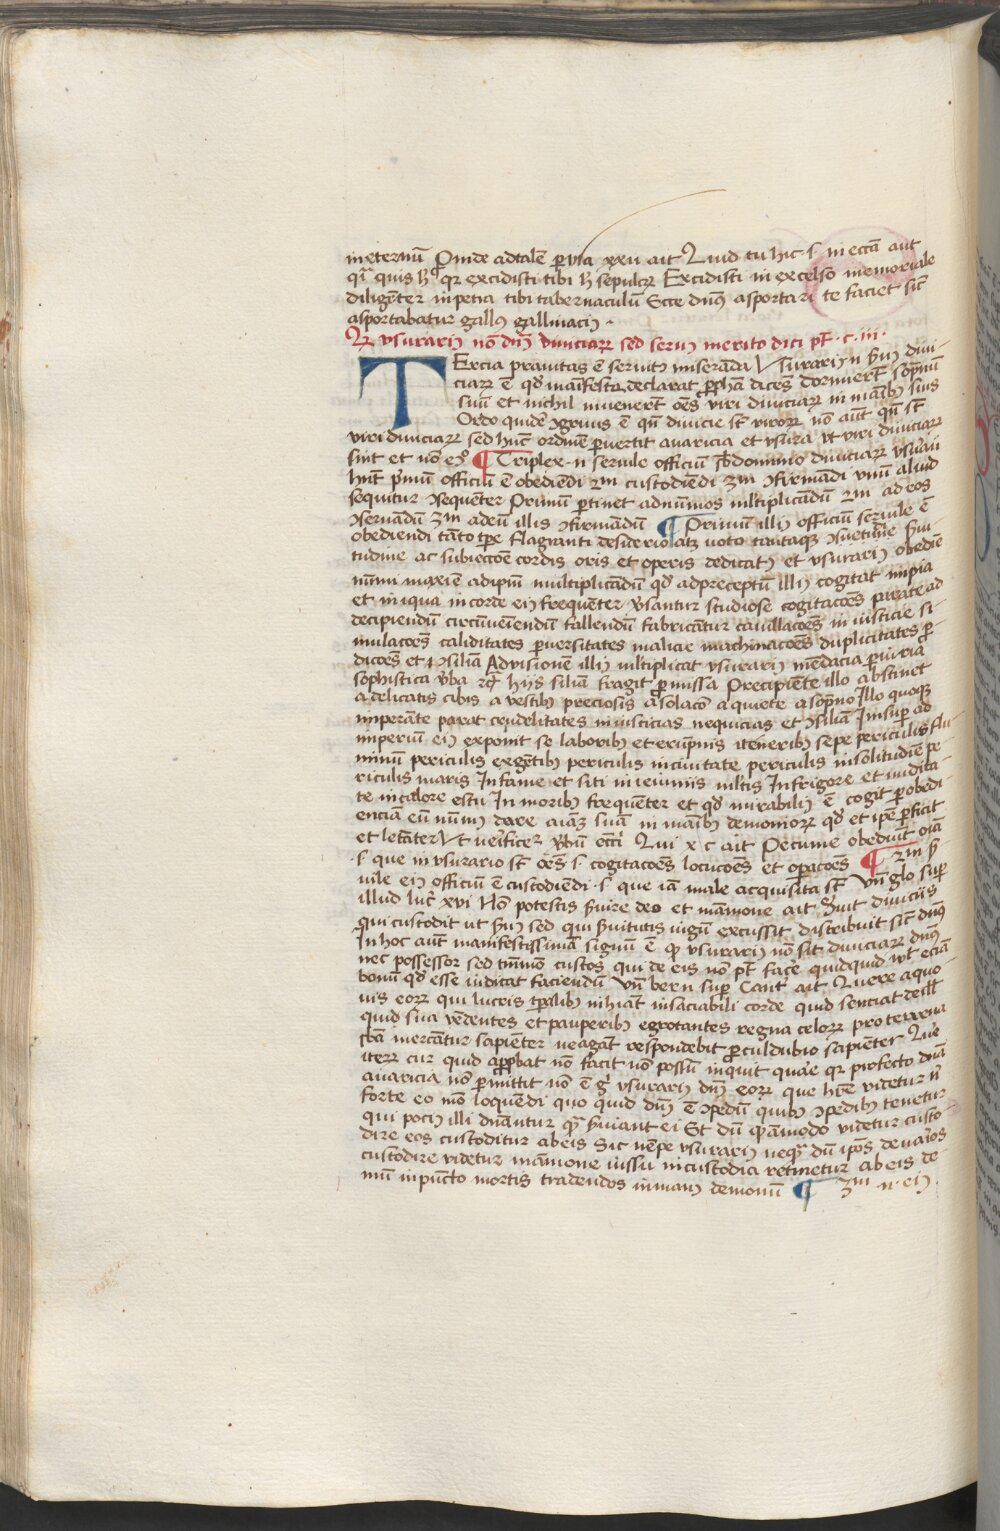 in eternū Proinde ad talē ysaia xxii ait Quid tu hic ſ in eccā aut
qr̄ quis hic qr excidisti tibi hic sepulcꝝ Excidisti in excelso memoriale
diligēter in petra tibi tabernaculū Ecce dnūs asportari te faciet sic̄
asportabatur gallꝰ gallinaciꝰ
Qꝛ vsurariꝰ nō dn̄s diviciaꝝ sed seruꝰ merito dici pt̄ · c · iii ·
TErcia prauitas ē seruitꝰ miserāda Vsurariꝰ n̄ ẜuꝰ divi-
ciaꝝ ē qd̄ manifesta declarat ꝓphā dicēs dormierūt sōpnū
suū et nichil inuenerūt oēs viri diviciaꝝ in manibꝰ suis
Ordo quidē ꝯgruus ē qn̄ diuicie st̄ viroꝝ nō aūt qn̄ st̄
viri diviciaꝝ sed hūc ordinē puertit avaricia et vsura vt viri diviciaꝝ
sint et nō eꝯͦ ¶ Triplex n̄ seruile officiū sb̄ dominio diviciaꝝ vsurarii
hn̄t prīmū officiū ē obediēdi 2m custodiēdi 3m ꝯfirmādi vnū aliud
sequitur ꝯsequēter Primū ꝑtinet ad nūmos mltiplicādū 2m ad eos
ꝯseruādū 3m ad eū illis ꝯfirmādū ¶ Primū illiꝰ officiū seruile ē
obediendi tāto tp̄e flagranti desiderio atꝫ voto tantaqꝫ ꝯsuetudīe ẜui-
tudine ac subiectōe cordis oris et operis dedicatꝰ et vsurariꝰ obediē
nūmi maxīe ad ipm̄ multiplicādū qd̄ ad preceptū illiꝰ cogitat impia
et iniqua in corde eiꝰ frequēter ṽsantur studiose cogitacōes parate ad
decipiendū circūueīendū fallendū fabricātur cauillacōēs in iusticie si-
mulacōēs caliditates ꝑuersitates malicie machinacōēs duplicitates ꝑ-
dicōēs et ꝯsīlia Ad visionē illiꝰ mltiplicat vsurariꝰ mēdacia ꝑiuria
sophistica ṽba et hiis silīa fragit ꝓmissa Precipiēte illo abstinet
a delicatis cibis a vestibꝰ preciosis a solacō a quiete a sōpno Illo quoqꝫ
imperāte parat crudelitates iniusticias nequicias et ꝯsīlīa Insuꝑ ad
imperiū eiꝰ exponit se laboribꝰ et erūpnis itineribꝰ sepe periculis flu-
minū periculis exgētibꝰ periculis in ciuitate periculis in solitudīe pe-
riculis maris In fame et siti in ieiuniis mltis In frigore et nudita-
te in calore estu In moribꝰ frequēter et qd̄ mirabiliꝰ ē cogit ꝑ obedi
enciam eū nūmꝰ dare aīaꝫ suā in manibꝰ demonioꝝ qd̄ et ip̄e ꝑficit
et letāter Vt verificeꝛ ṽbū eccī Qui x c ait Pecunie obediūt oīā
ſ que in vsurario st̄ oēs ſ cogitacōēs locucōēs et oꝑacōēs ¶ 2m ẜ
uile eiꝰ officiū ē custodiēdi ſ que iā male acquisita st̄ vn̄ glo suꝑ
illud luc̄ xvi Nō potestis ẜuire deo et māmone ait ẜuit diuiciis
qui custodit ut ẜuꝰ sed qui ẜuitutis iugū excussit distribuit sic̄ dnūs
In hoc aūt manifestissimā signū ē qꝫ vsurariꝰ nō sit diviciaꝝ dnūs
nec possessor sed tm̄mō custos qui de eis nō pt̄ facē quidquid vl̄t eciā
bonū qd̄ esse iudicat faciendū vn̄ bern suꝑ Cant̄ ait Quere a quo
uis eoꝝ qui lucris tp̄alibꝰ inhiāt insaciabili corde quid senciat de illꝰ
quid sua vēdentes et pauperibꝰ egrotantes regna celoꝝ pro terrena
sb̄ā mercātur sapiēter ne agāt respondebit ꝓculdubio sapiēter Que
iteꝝ cur quid apꝓbat nō facit nō possū inquit quare qꝛ profecto dnā
avaricia nō ꝑmittit nō ē ḡ vsurariꝰ dn̄s eoꝝ que hr̄e videtur ń
forte eo mō loquendi quo quid dn̄s ē ꝯpedū quibꝰ ꝯpedibꝰ tenetur
qui pociꝰ illi dnāntur qꝫ ẜuiant ei Et dū quādmodo videtur custo-
dire eos custoditur ab eis Sic nēpe vsurariꝰ neqꝫ dū ip̄os denarios
custodire videtur māmone iussu in custodia retinetur ab eis de-
mū in pūcto mortis tradendos in manꝰ demonū ¶ 3m n̄ eiꝰ